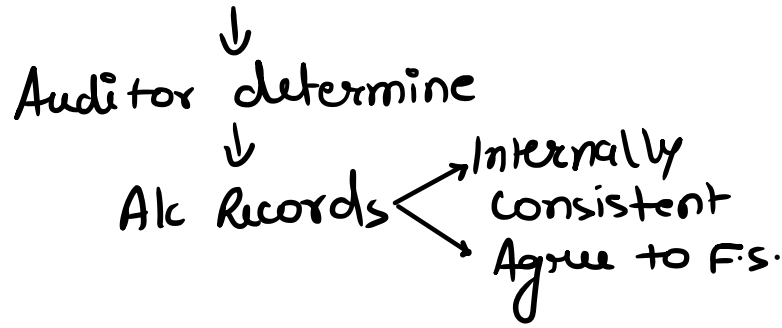 Auditor determine
A/c Records
Internally
consistent
Agree to F.S.